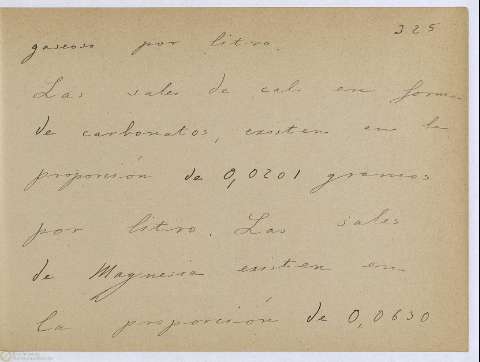 325
gaseoso por litro.
Las sales de cal, en forma
de carbonatos, existen en la
proporción de 0,0201 gramos
por litro. Las sales
de Magnesia existen en
la proporción de 0,0630